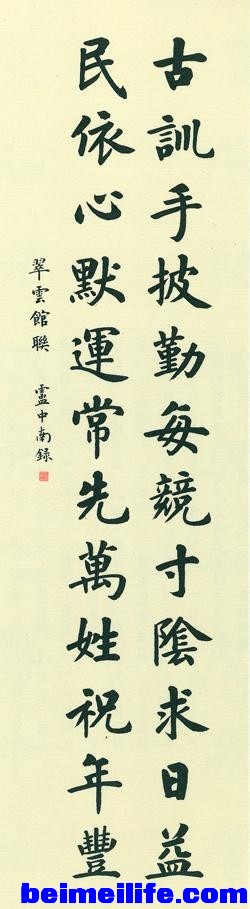 古訓手披勤每競寸陰求日益
民依心默運常先萬姓祝年豐
翠雲館聯 盧中南錄
beimeilife.com